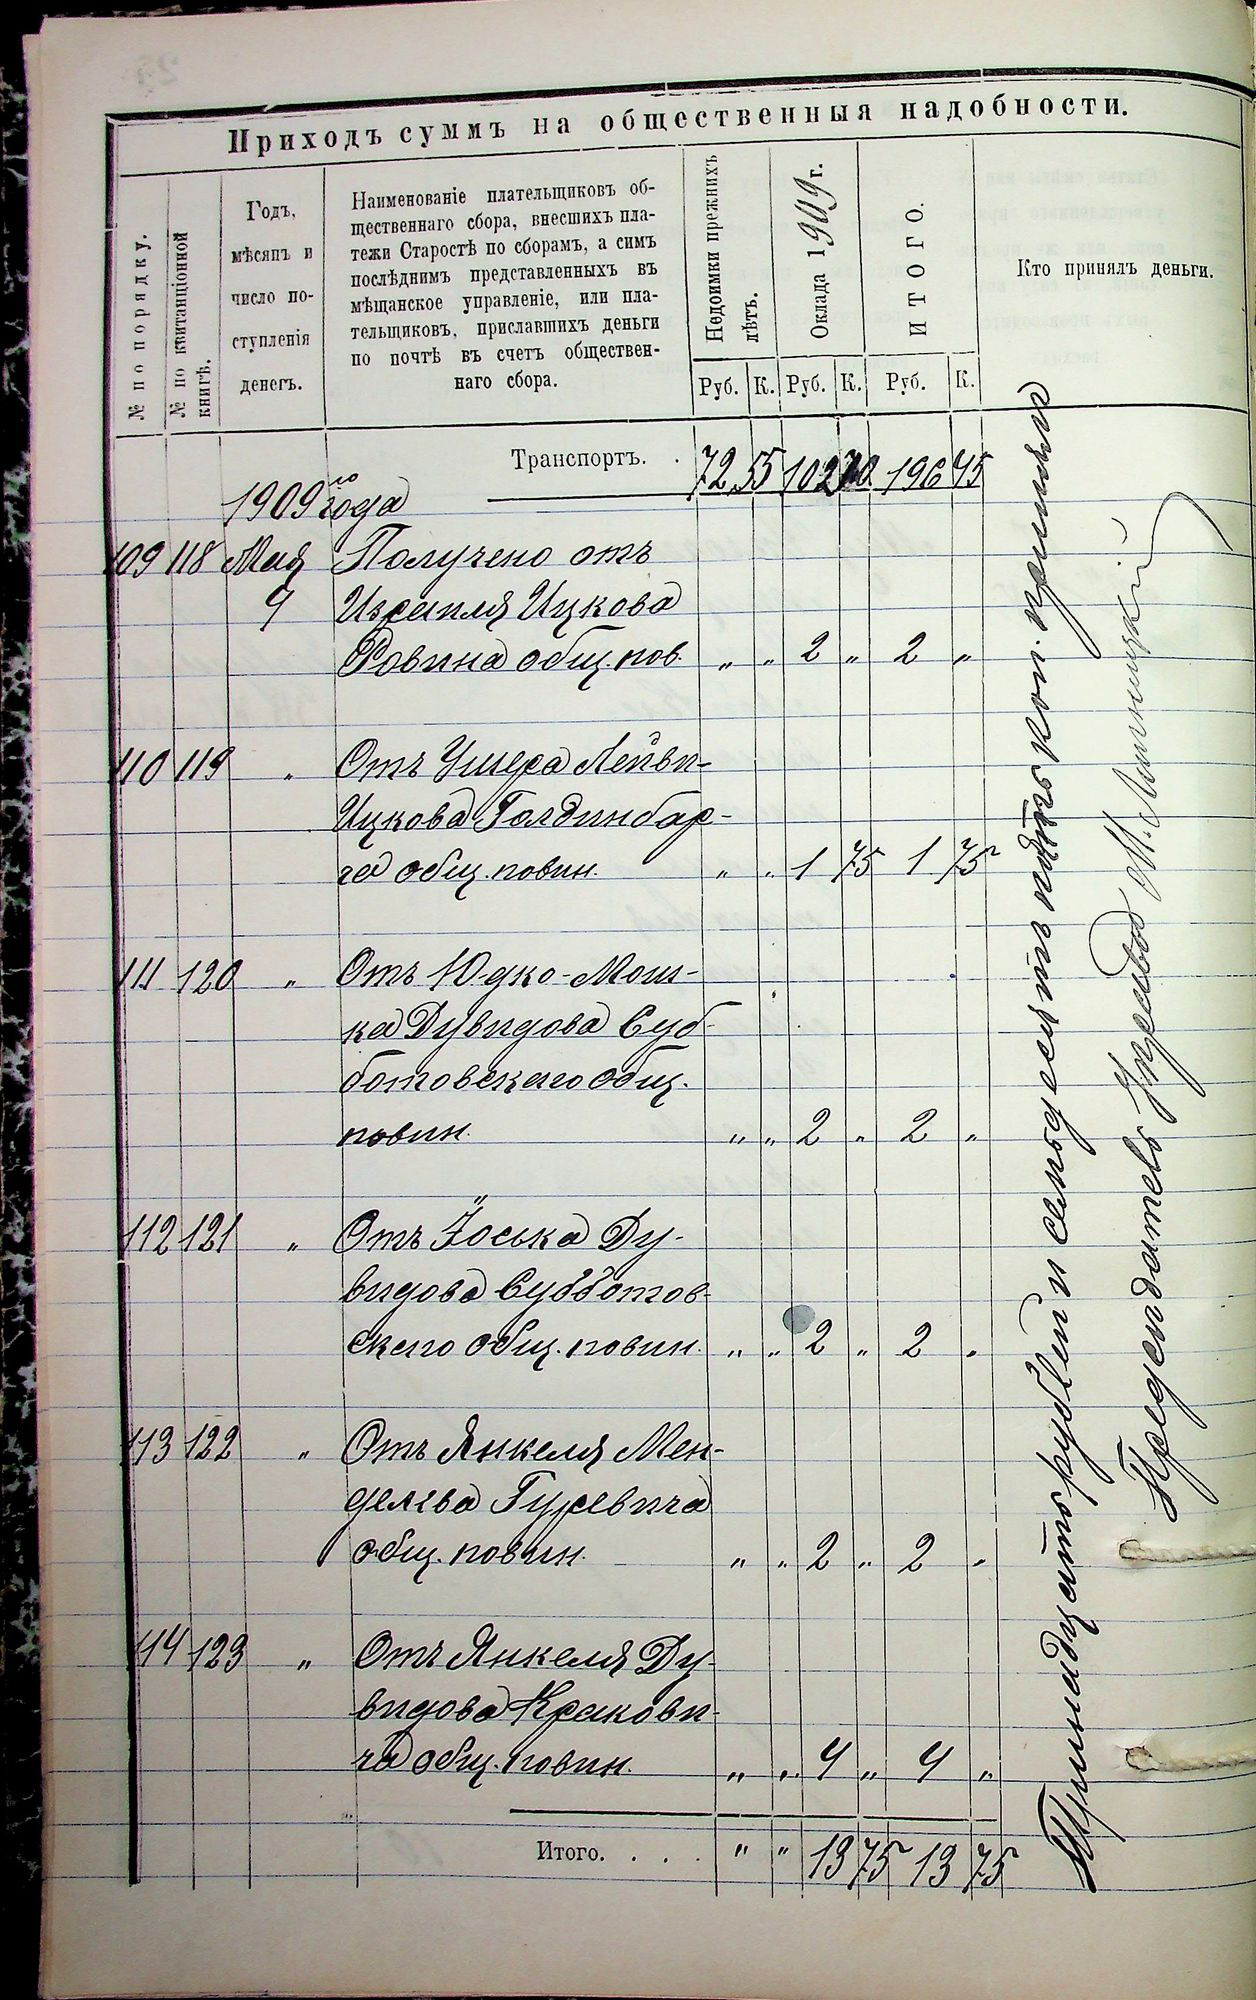 Приходъ суммъ на общественныя надобности.
№ по порядку.
№ по квитанціонной
книгѣ.
Годъ,
мѣсяцъ и
число по-
ступленія
денегъ.
Наименованіе плательщиковъ об-
щественнаго сбора, внесшихъ пла-
тежи Старостѣ по сборамъ, а симъ
послѣднимъ представленныхъ въ
мѣщанское управленіе, или пла-
тельщиковъ, приславшихъ деньги
по почтѣ въ счетъ обществен-
наго сбора.
Недоимки прежнихъ
лѣтъ.
Оклада 1909 г.
ИТОГО.
Кто принялъ деньги.
Руб. К. Руб. К. Руб. К.
Транспортъ. . 72 55 102 196 45
1909го года
109 118 Мая Получено отъ
9 Израиля Ицкова
Ровина общ. пов. " " 2 " 2 "
110 119 " Отъ Ушера Лейви-
Ицкова Голдинбар-
га общ. повин. " " 1 75 1 75
111 120 " Отъ Юдко-Мош-
ка Дувидова Суб-
ботовскаго общ.
повин. " " 2 " 2 "
112 121 " Отъ Іоська Ду-
видова Субботов-
скаго общ. повин. " " 2 " 2 "
113 122 " Отъ Янкеля Мен-
делева Гуревича
общ. повин. " " 2 " 2 "
114 123 " Отъ Янкеля Ду-
видова Хракови-
ча общ. повин. " " 4 " 4 "
Итого. . . . " " 13 75 13 75
Тринадцать рублей и семьдесятъ пять коп. принялъ
Предсѣдатель Управы М.